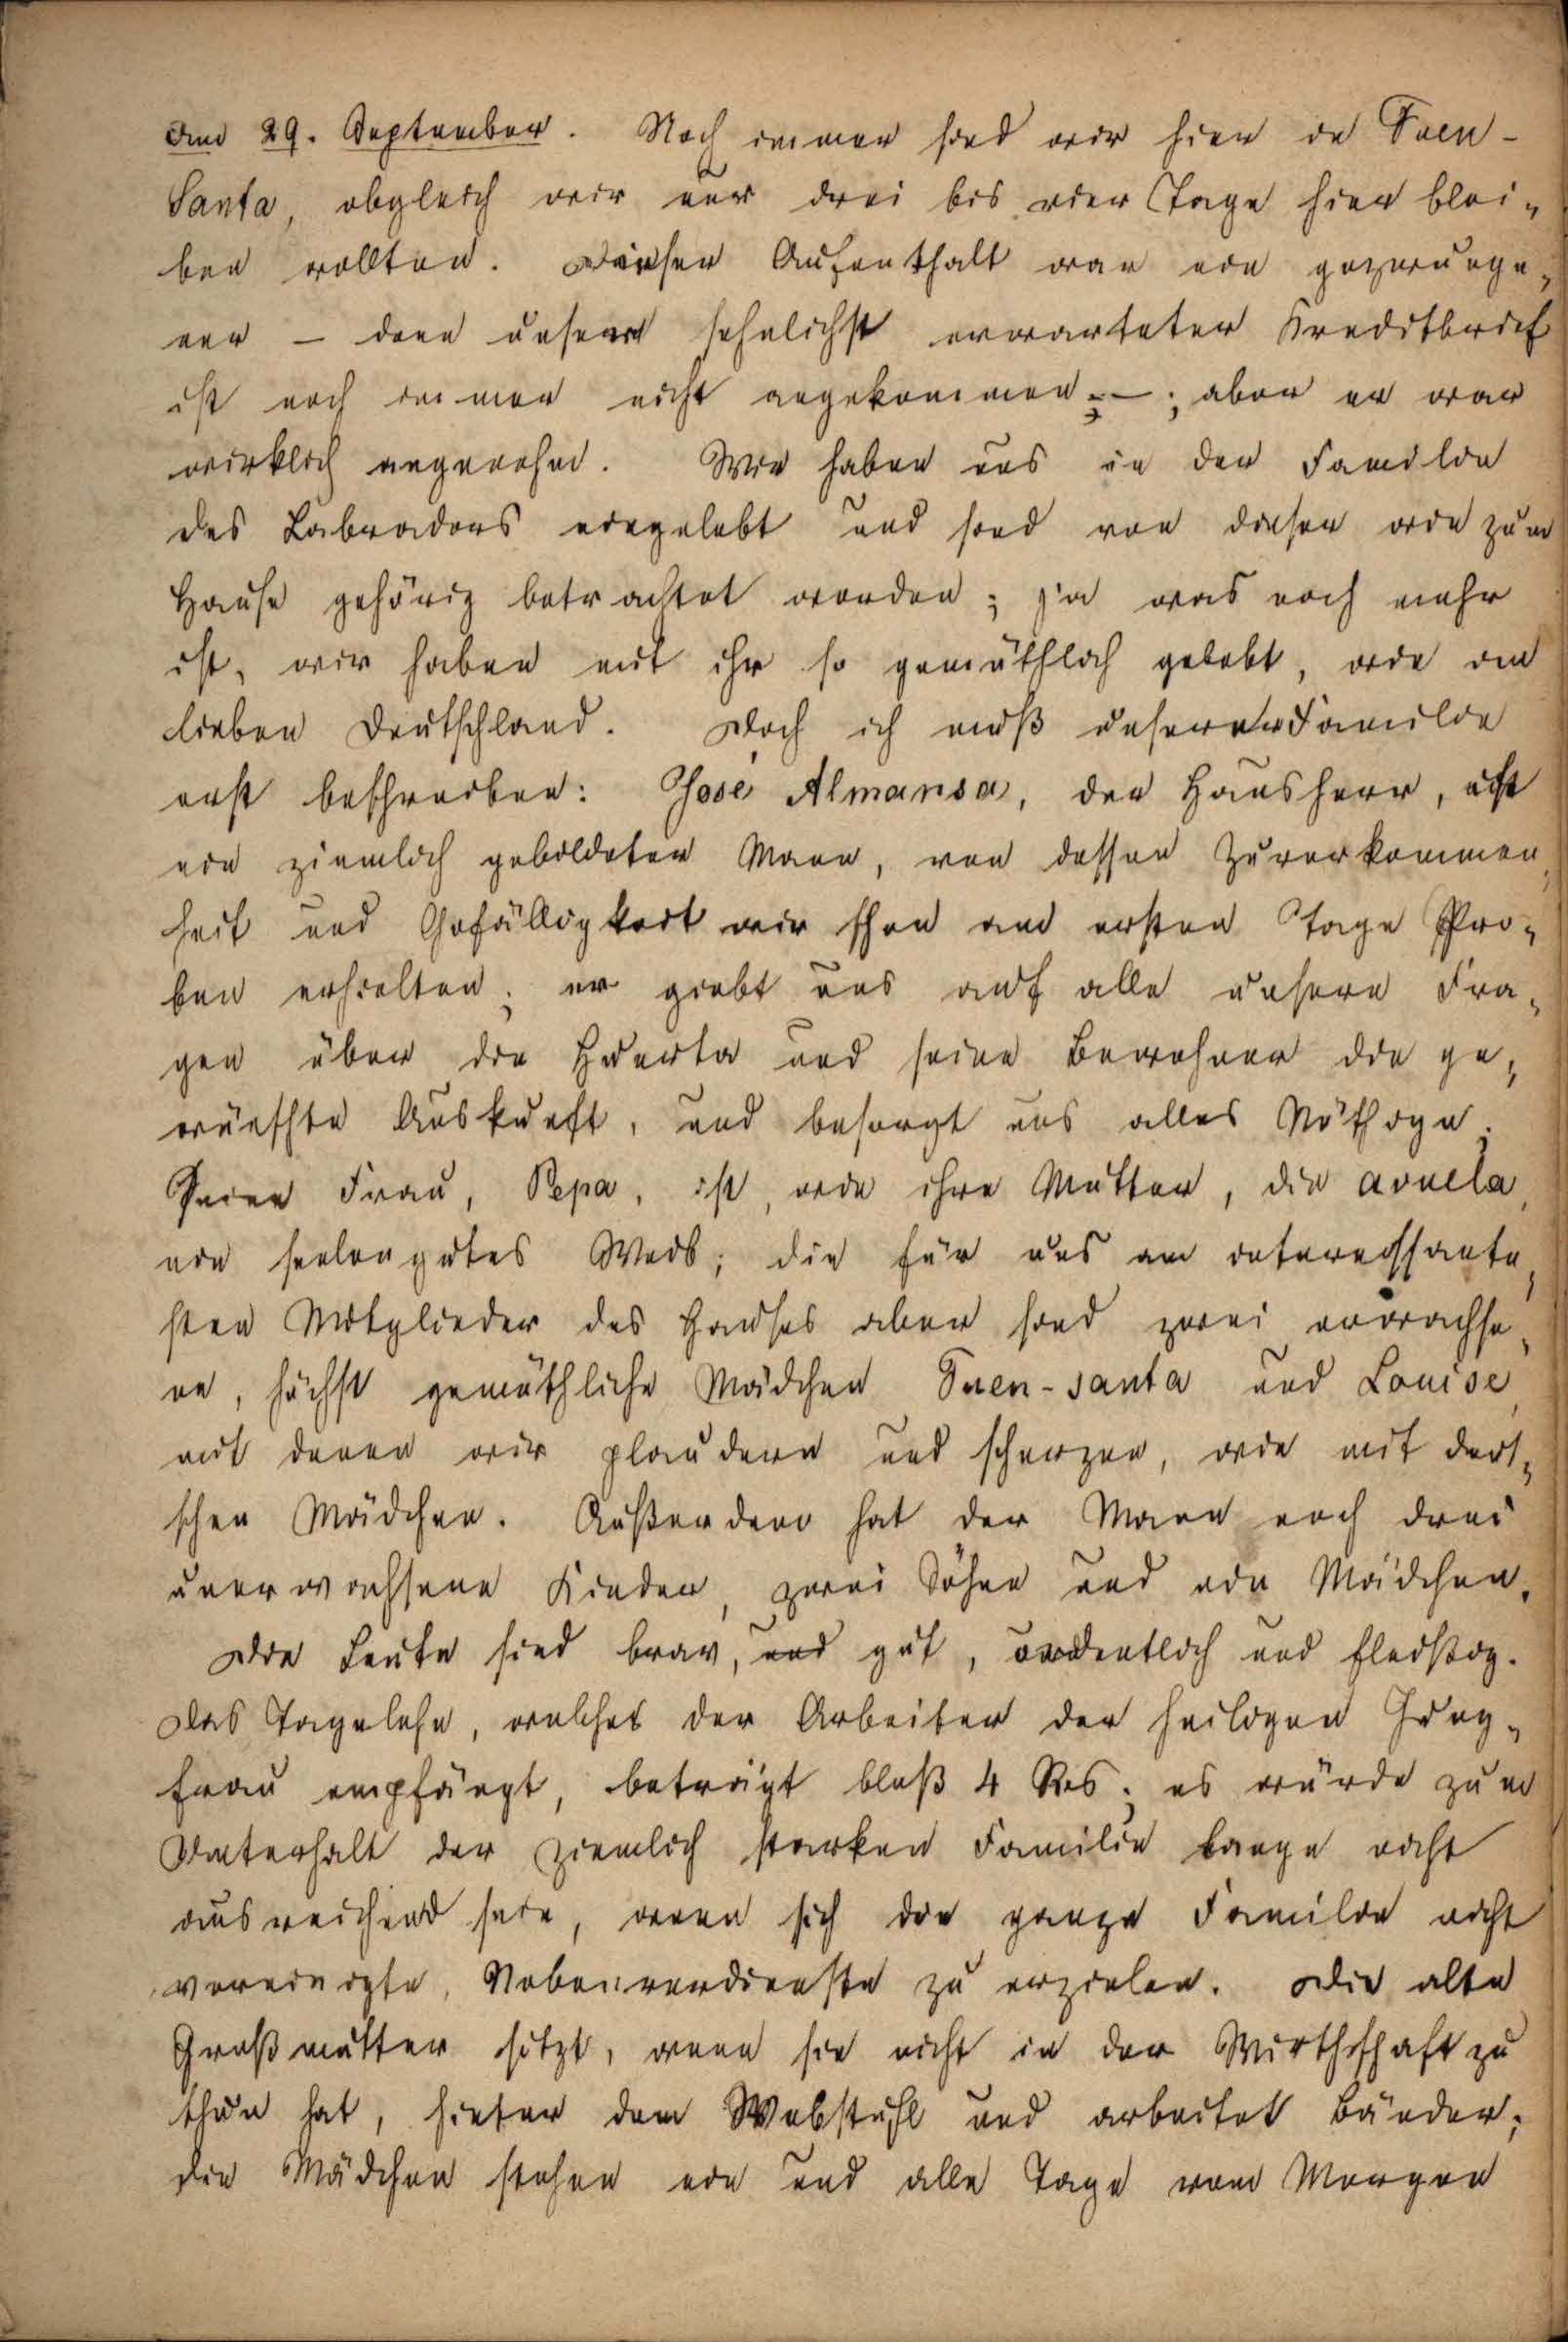 Am 29. September. Noch immer sind wir hier in Fuen-
Santa, obgleich wir nur drei bis vier Tage hier blei-
ben wollten. Dieser Aufenthalt war ein gezwunge-
ner – denn unser sehnlichst erwarteter Kreditbrief
ist noch immer nicht angekommen –; aber er war
wirklich angenehm. Wir haben uns in der Familie
des Labradors eingelebt und sind von dieser wie zum
Hause gehörig betrachtet worden; ja was noch mehr
ist, wir haben mit ihr so gemüthlich gelebt, wie im
lieben Deutschland. Doch ich muß unsere Familie
erst beschreiben: José Almansa, der Hausherr, ist
ein ziemlich gebildeter Mann, von dessen Zuvorkommen-
heit und Gefälligkeit wir schon am ersten Tage Pro-
ben erhielten; er giebt uns auf alle unsere Fra-
gen über die Huerta und seine Bewohner die ge-
wünschte Auskunft, und besorgt uns alles Nöthige.
Seine Frau, Pepa, ist, wie ihre Mutter, die avuela,
ein seelengutes Weib; die für uns am interessante-
sten Mitglieder des Hauses aber sind zwei erwachse-
ne, höchst gemüthliche Mädchen Fuen-santa und Louise,
mit denen wir plaudern und scherzen, wie mit deut-
schen Mädchen. Außerdem hat der Mann noch drei
unerwachsene Kinder, zwei Söhne und ein Mädchen.
Die Leute sind brav, und gut, ordentlich und fleißig.
Das Tagelohn, welches der Arbeiter der heiligen Jung-
frau empfängt, beträgt bloß 4 Rs; es würde zum
Unterhalt der ziemlich starken Familie lange nicht
ausreichend sein, wenn sich die ganze Familie nicht
vereinigte, Nebenverdienste zu erzielen. Die alte
Großmutter sitzt, wenn sie nicht in der Wirthschaft zu
thun hat, hinter dem Webstuhl und arbeitet Bänder;
die Mädchen stehen ein und alle Tage vom Morgen